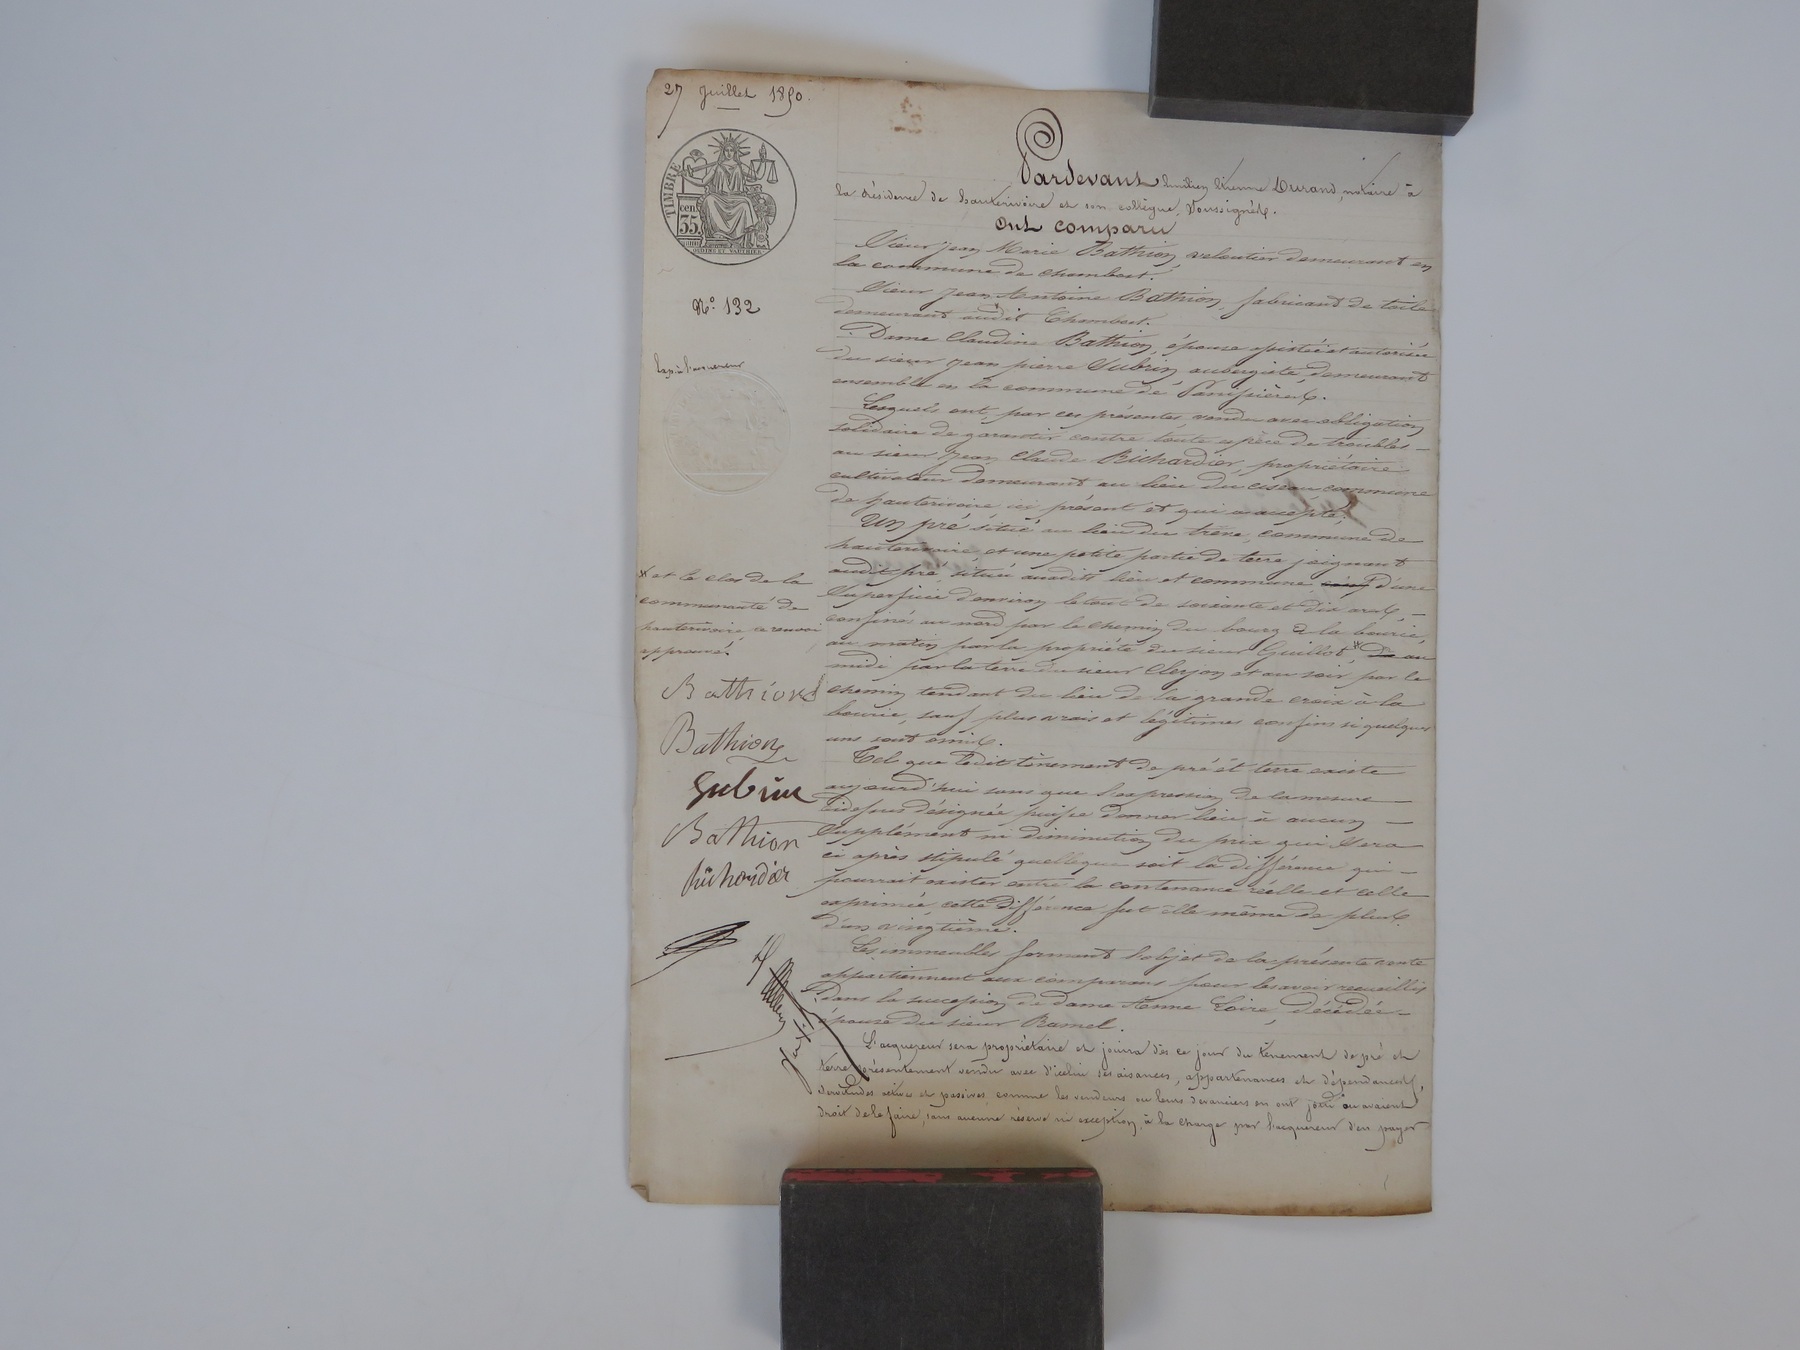 27 Juillet 1850.
TIMBRE
cen.
35.
N.º 132
Pardevant Emilien Etienne Durand, notaire à
la résidence de hauterivoire et son collègue, soussignés.
Ont comparu
Sieur jean Marie Bathion, veloutier demeurant en
la commune de Chambost.
Sieur jean Antoine Bathion, fabricant de toile
demeurant audit Chambost.
Dame Claudine Bathion, épouse assistée et autorisée
du sieur jean pierre Gubrin, aubergiste, demeurant
ensemble en la commune de Panissières.
Lesquels ont, par ces présentes, vendu avec obligation
solidaire de garantir contre toute espèce de troubles
au sieur jean Claude Richardier, propriétaire
cultivateur demeurant au lieu du ciseau commune
de hauterivoire ici présent et qui a accepté.
Un pré situé au lieu du trêve, commune de
hauterivoire, et une petite partie de terre joignant
audit pré, située auxdits lieu et commune d'une
superficie d'environ le tout de soixante et dix ares,
confinés au nord par le chemin du bourg à la bourie,
au matin par la propriété du sieur Guillot, * au
midi par la terre du sieur Cleyson et au soir par le
chemin tendant du lieu de la grande croix à la
bourie, sauf plus vrais et légitimes confins si quelques
uns sont omis.
Tel que ledit tènement de pré et terre existe
aujourd'hui sans que l'expression de la mesure
cidessus désignée puisse donner lieu à aucun
supplément ni diminution du prix qui sera
ci après stipulé quelleque soit la différence qui
pourrait exister entre la contenance réelle et celle
exprimée, cette différence fut elle même de plus
d'un vingtième.
Les immeubles formant l'objet de la présente vente
appartiennent aux comparans pour les avoir recueillis
dans la succession de dame Anne Loire, décédée
épouse du sieur Ramel.
L'acquéreur sera propriétaire et jouira dès ce jour du tènement de pré et
terre présentement vendu avec d'icelui ses aisances, appartenances et dépendances,
servitudes actives et passives, comme les vendeurs ou leurs devanciers en ont joui ou avaient
droit de le faire, sans aucune réserve ni exception, à la charge par l'acquéreur d'en payer
* et le clos de la
communauté de
hauterivoire ce renvoi
approuvé.
Bathion
Bathion
Gubrin
Bathion
Richardier